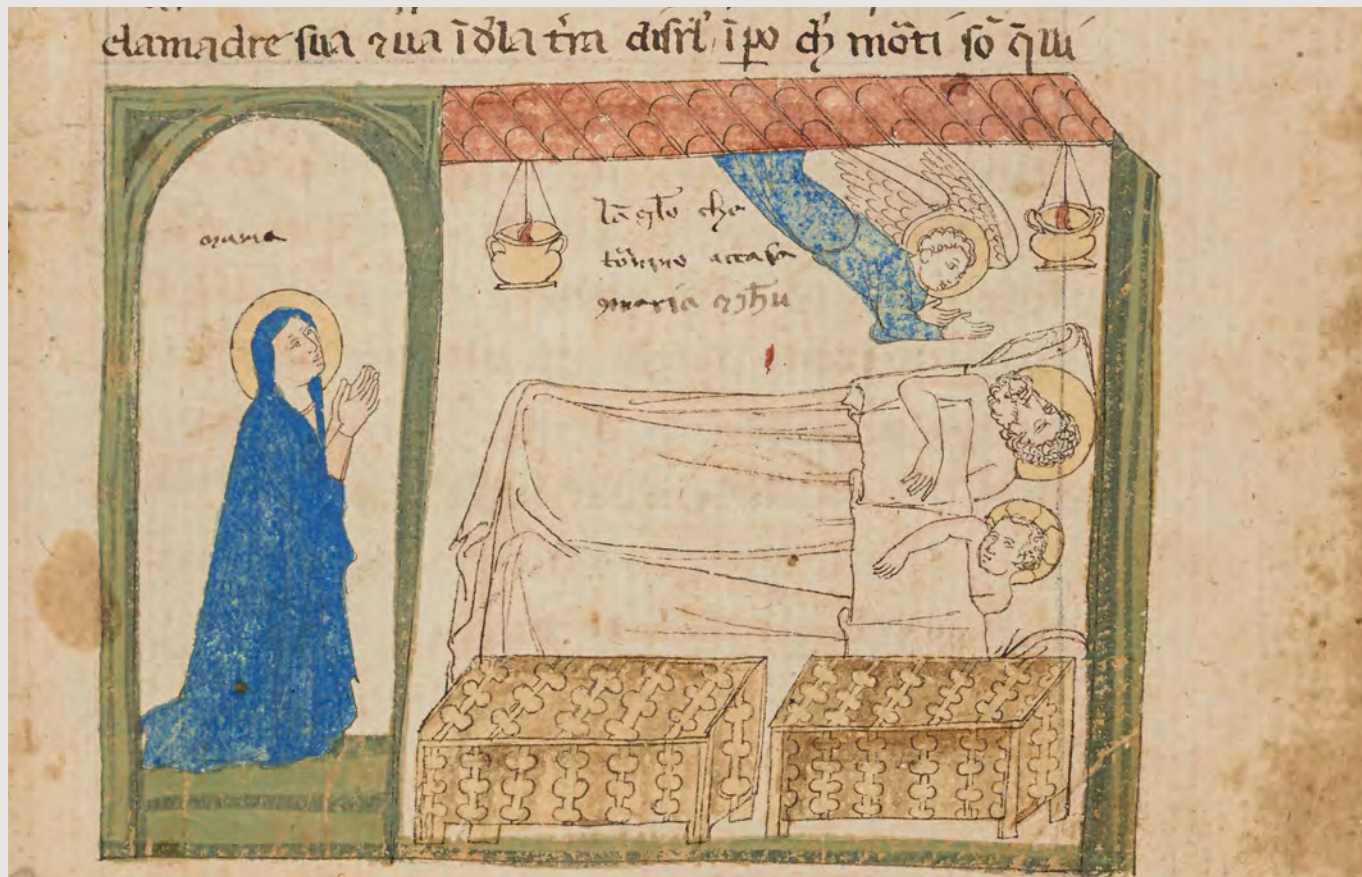 clamadre sua ⁊ ua ĩ d'la tr̃a disrl', ĩpo ch' mõti sõ q̃lli
maria
lãgl'o che
tornino accasa
maria ⁊ jhũ